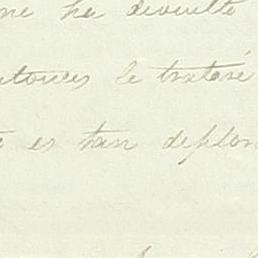 me ha devuelto
entonces le trataré
es tan deplor